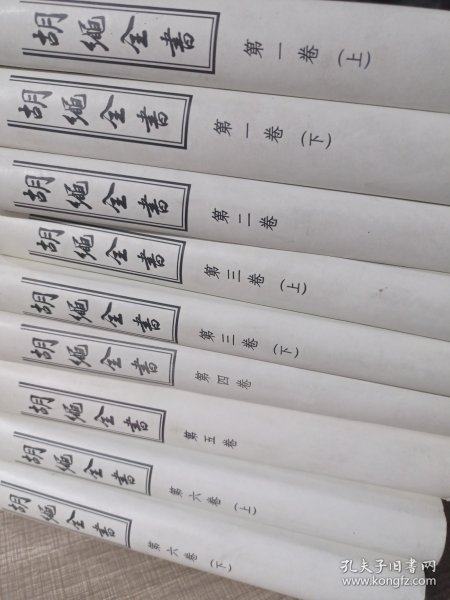 胡绳全書 第一卷(上)
胡绳全書 第一卷(下)
胡绳全書 第二卷
胡绳全書 第三卷(上)
胡绳全書 第三卷(下)
胡绳全書 第四卷
胡绳全書 第五卷
胡绳全書 第六卷(上)
胡绳全書 第六卷(下)
孔夫子旧书网
www.kongfz.com